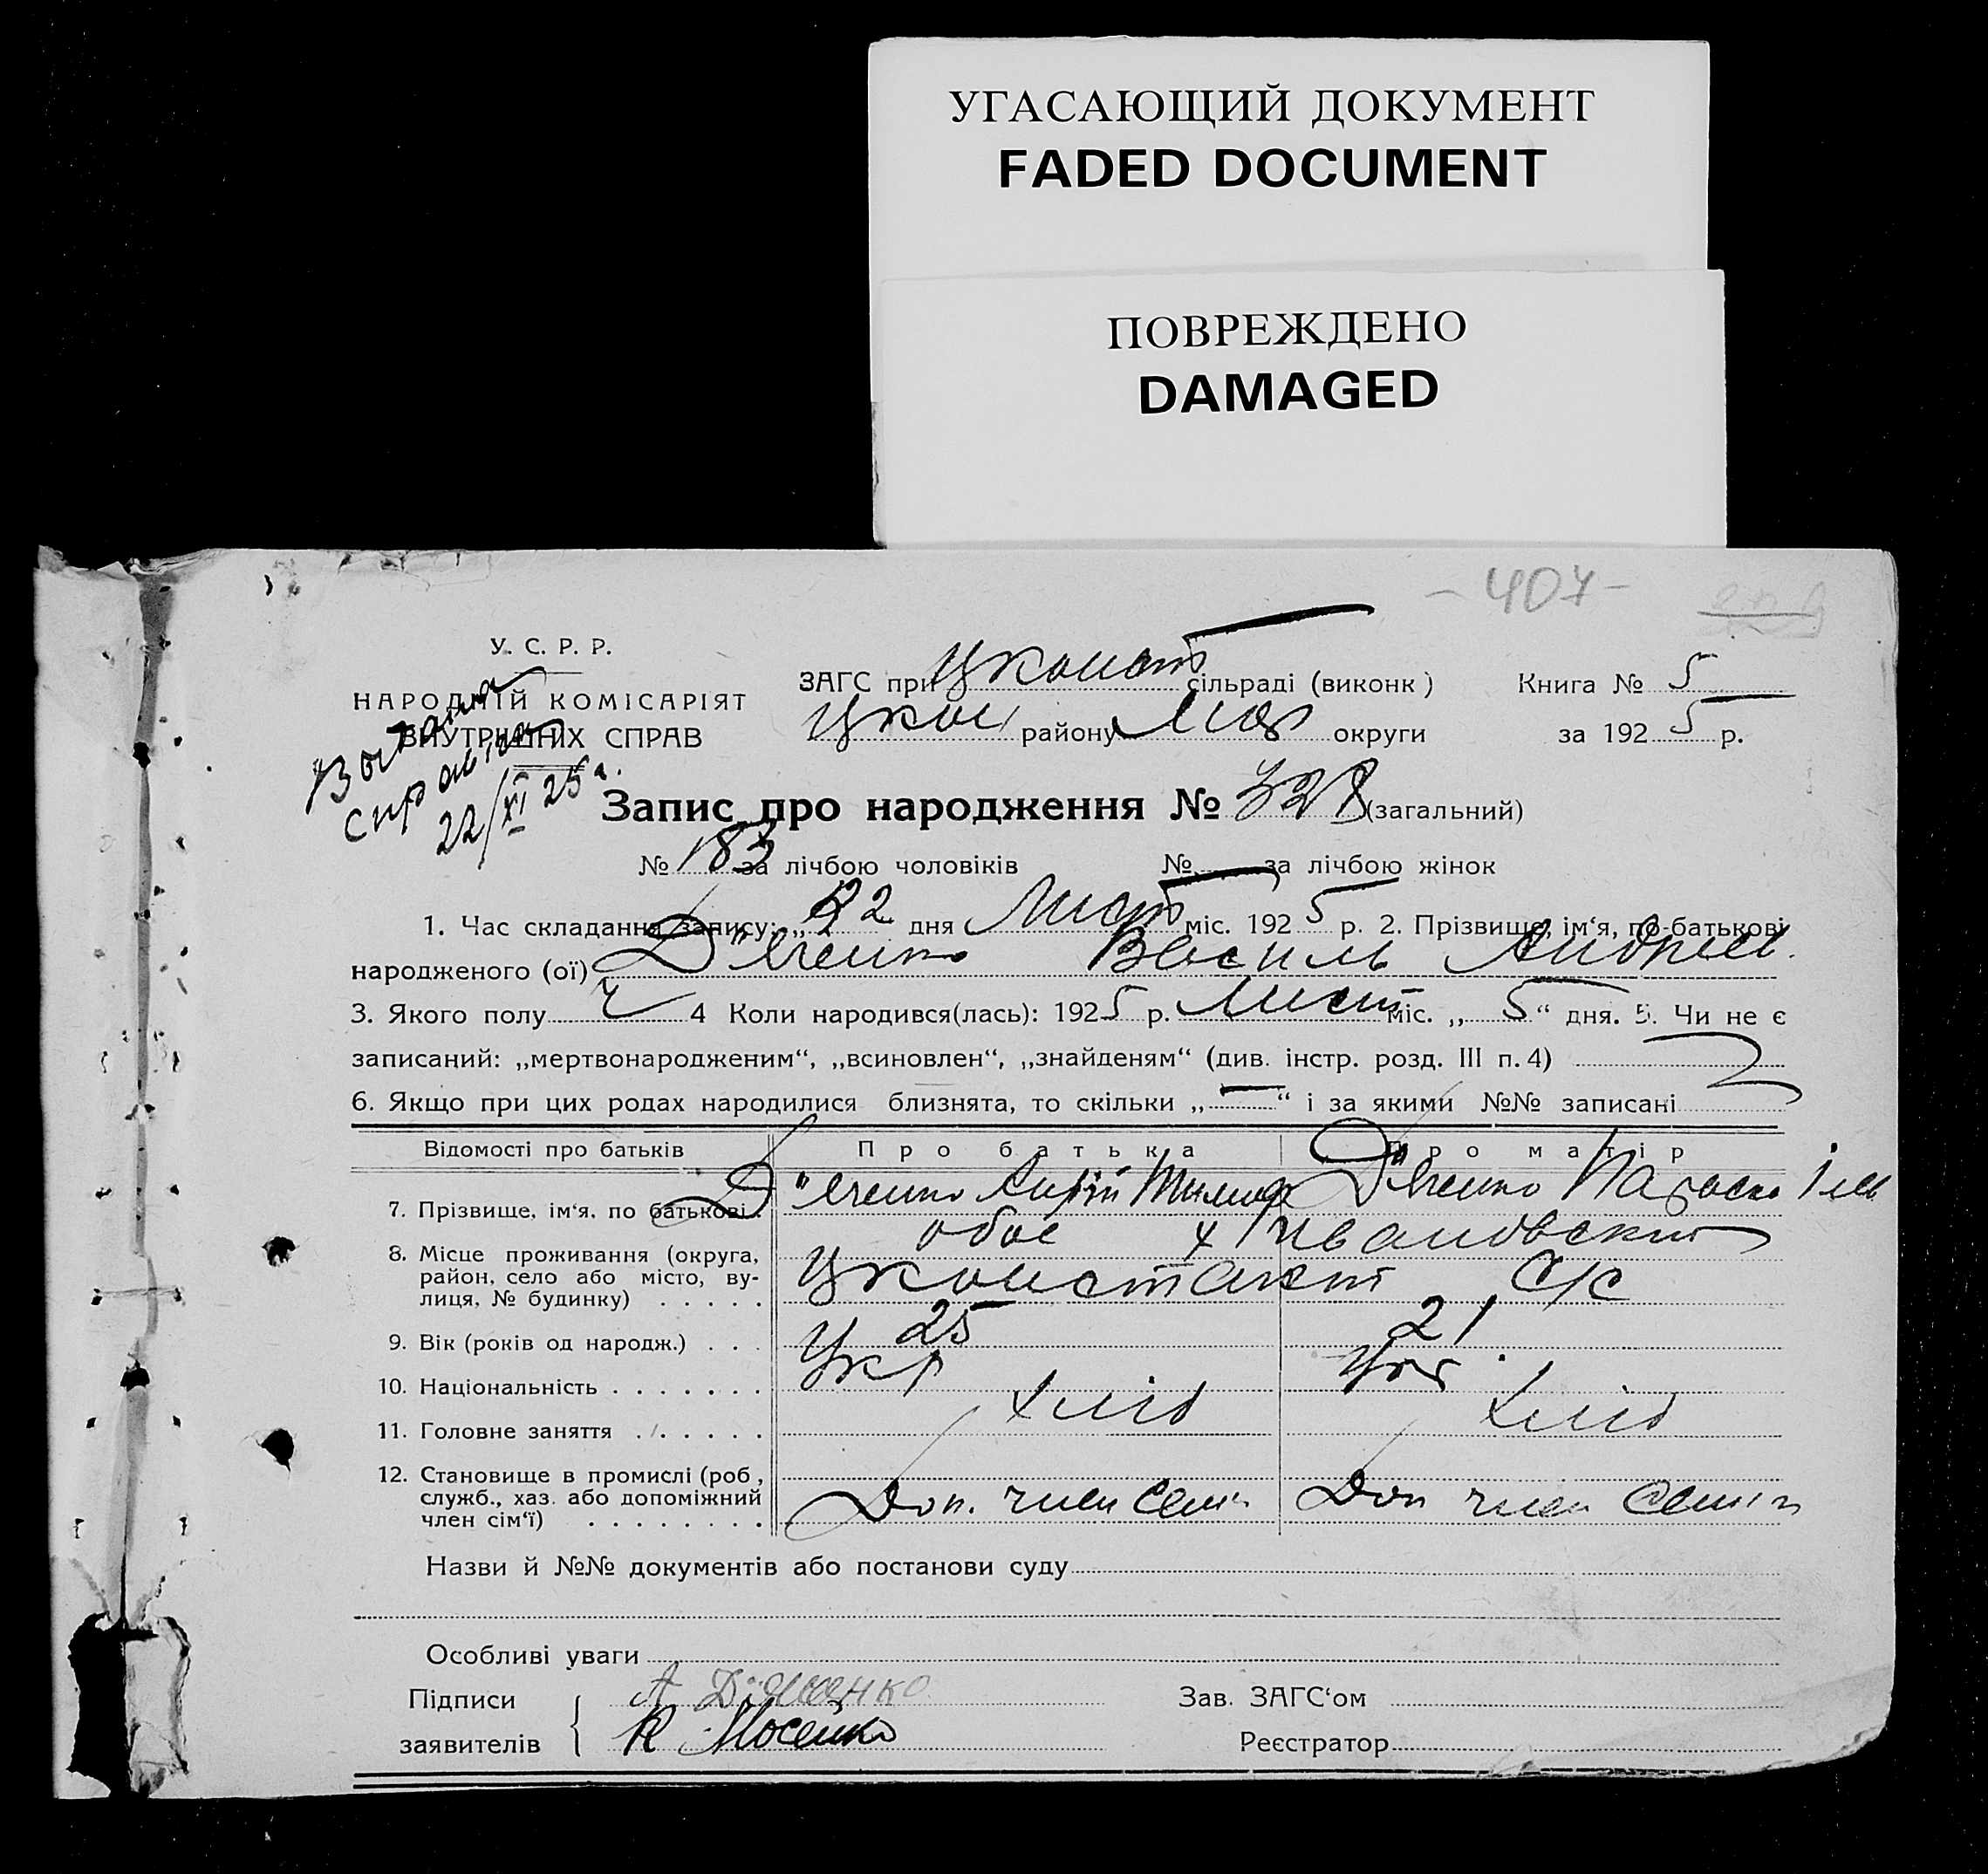 УГАСАЮЩИЙ ДОКУМЕНТ
FADED DOCUMENT
ПОВРЕЖДЕНО
DAMAGED
- 407 -
У. С. Р. Р.
НАРОДНІЙ КОМІСАРІЯТ
ВНУТРІШНІХ СПРАВ
Видана
справка
22/XI 25
ЗАГС при Цконст сільраді (виконк) Книга № 5
Цкон району округи за 1925 р.
Запис про народження № 328 (загальний)
№ 183 за лічбою чоловіків № — за лічбою жінок
1. Час складання запису: „22 дня Лист міс. 1925 р. 2. Прізвище, ім‘я, по-батькові
народженого (ої) Д"яченко Василь Андрієв.
3. Якого полу ч 4 Коли народився(лась): 1925 р. Лист міс. „ 5 “ дня. 5. Чи не є
записаний: „мертвонародженим“, „всиновлен“, „знайденям“ (див. інстр. розд. III п. 4)
6. Якщо при цих родах народилися близнята, то скільки „ — “ і за якими №№ записані
Відомості про батьків Про батька Про матір
7. Прізвище, ім‘я, по батькові. Д"яченко Андрій Тимоф Д"яченко Параска Ілл
8. Місце проживання (округа, обоє х Івановский
район, село або місто, ву- Цконстант с/с
лиця, № будинку) . . . . .
9. Вік (років од народж.) . . . 25 21
10. Національність . . . . . . . Укр Укр
11. Головне заняття . . . . . . хліб хліб
12. Становище в промислі (роб,
служб., хаз. або допоміжний Доп. член семї Доп член семї
член сім‘ї) . . . . . . . .
Назви й №№ документів або постанови суду
Особливі уваги
Підписи А Дьяченко Зав. ЗАГС‘ом
заявителів К Мосейко Реєстратор